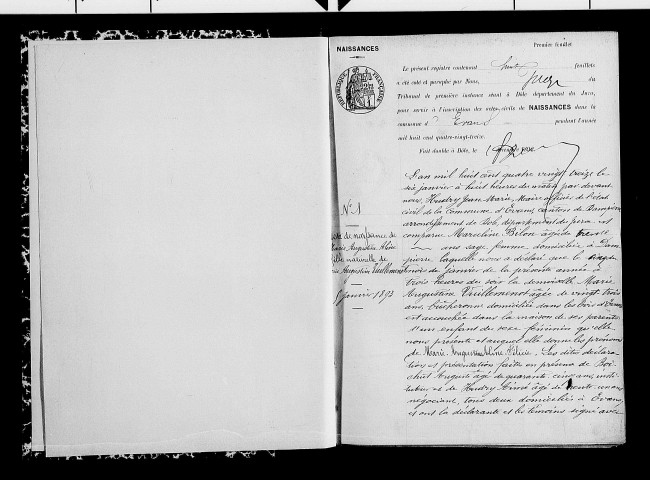 NAISSANCES
Premier feuillet
Le présent registre contenant huit feuillets
a été coté et paraphé par Nous, Juge du
Tribunal de première instance séant à Dôle département du Jura,
pour servir à l'inscription des actes civils de NAISSANCES dans la
commune d' Evans pendant l'année
mil huit cent quatre-vingt-treize.
Fait double à Dôle, le
REPUBLIQUE FRANÇAISE
L'an mil huit cent quatre vingt treize le
six janvier à huit heures du matin par devant
nous, Hudry Jean Marie, Maire officier de l'état
civil de la Commune d'Evans canton de Dampierre
arrondissement de Dole, département du Jura est
comparue Marceline Bilot âgée de trente
ans sage femme domiciliée à Dam
pierre laquelle nous a déclaré que le cinq du
mois de janvier de la présente année à
trois heures du soir la demoiselle Marie
Augustine Vuillemenot âgée de vingt trois
ans, domiciliée dans les bois d'Evans
est accouchée dans la maison de ses parents
d'un enfant de sexe féminin qu'elle
nous présente et auquel elle donne les prénoms
de Marie Augustine Aline Félicie. Les dites déclara
tion et présentation faites en présence de Boi
chut Auguste âgé de quarante cinq ans, insti
tuteur et de Hudry Aimé âgé de trente un ans
négociant, tous deux domiciliés à Evans,
et ont la déclarante et les témoins signé avec
N° 1
Acte de naissance de
Marie Augustine Aline
fille naturelle de
Marie Augustine Vuillemenot
5 Janvier 1893